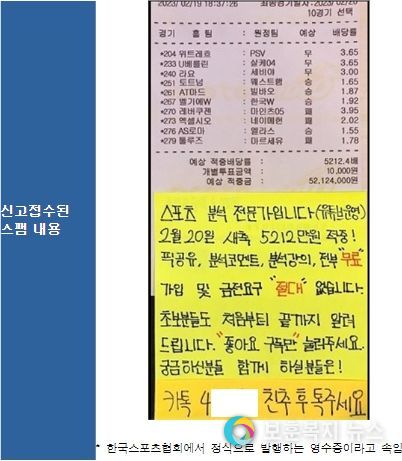 신고접수된
스팸 내용
2023/02/19 18:37:26
10경기 선택
경기 홈 팀 : 원정팀 예상 배당률
*204 위트레흐 : PSV 무 3.65
*233 U베를린 : 살케04 무 3.65
*240 리요 : 세비야 무 3.00
*251 토트넘 : 웨스트햄 승 1.65
*261 AT마드 : 빌바오 승 1.87
*267 벨기에W : 한국W 승 1.92
*270 레버쿠젠 : 마인츠05 패 3.95
*273 엑셀시오 : 네이메헌 승 2.02
*276 AS로마 : 엘라스 승 1.55
*279 툴루즈 : 마르세유 패 1.78
예상 적중배당률 : 5212.4배
개별투표금액 : 10,000원
예상 적중금 : 52,124,000원
스포츠 분석 전문가입니다
2월 20일 새축 5212만원 적중!
픽공유, 분석코멘트, 분석강의, 전부 "무료"
가입 및 금전요구 "절대" 없습니다.
초보분들도 처음부터 끝까지 알려
드립니다. "좋아요 구독만" 눌러주세요.
궁금하신분들 함께 하실분들은!
카톡 4 친추 후 톡주세요
보훈복지 뉴스
* 한국스포츠협회에서 정식으로 발행하는 영수증이라고 속임